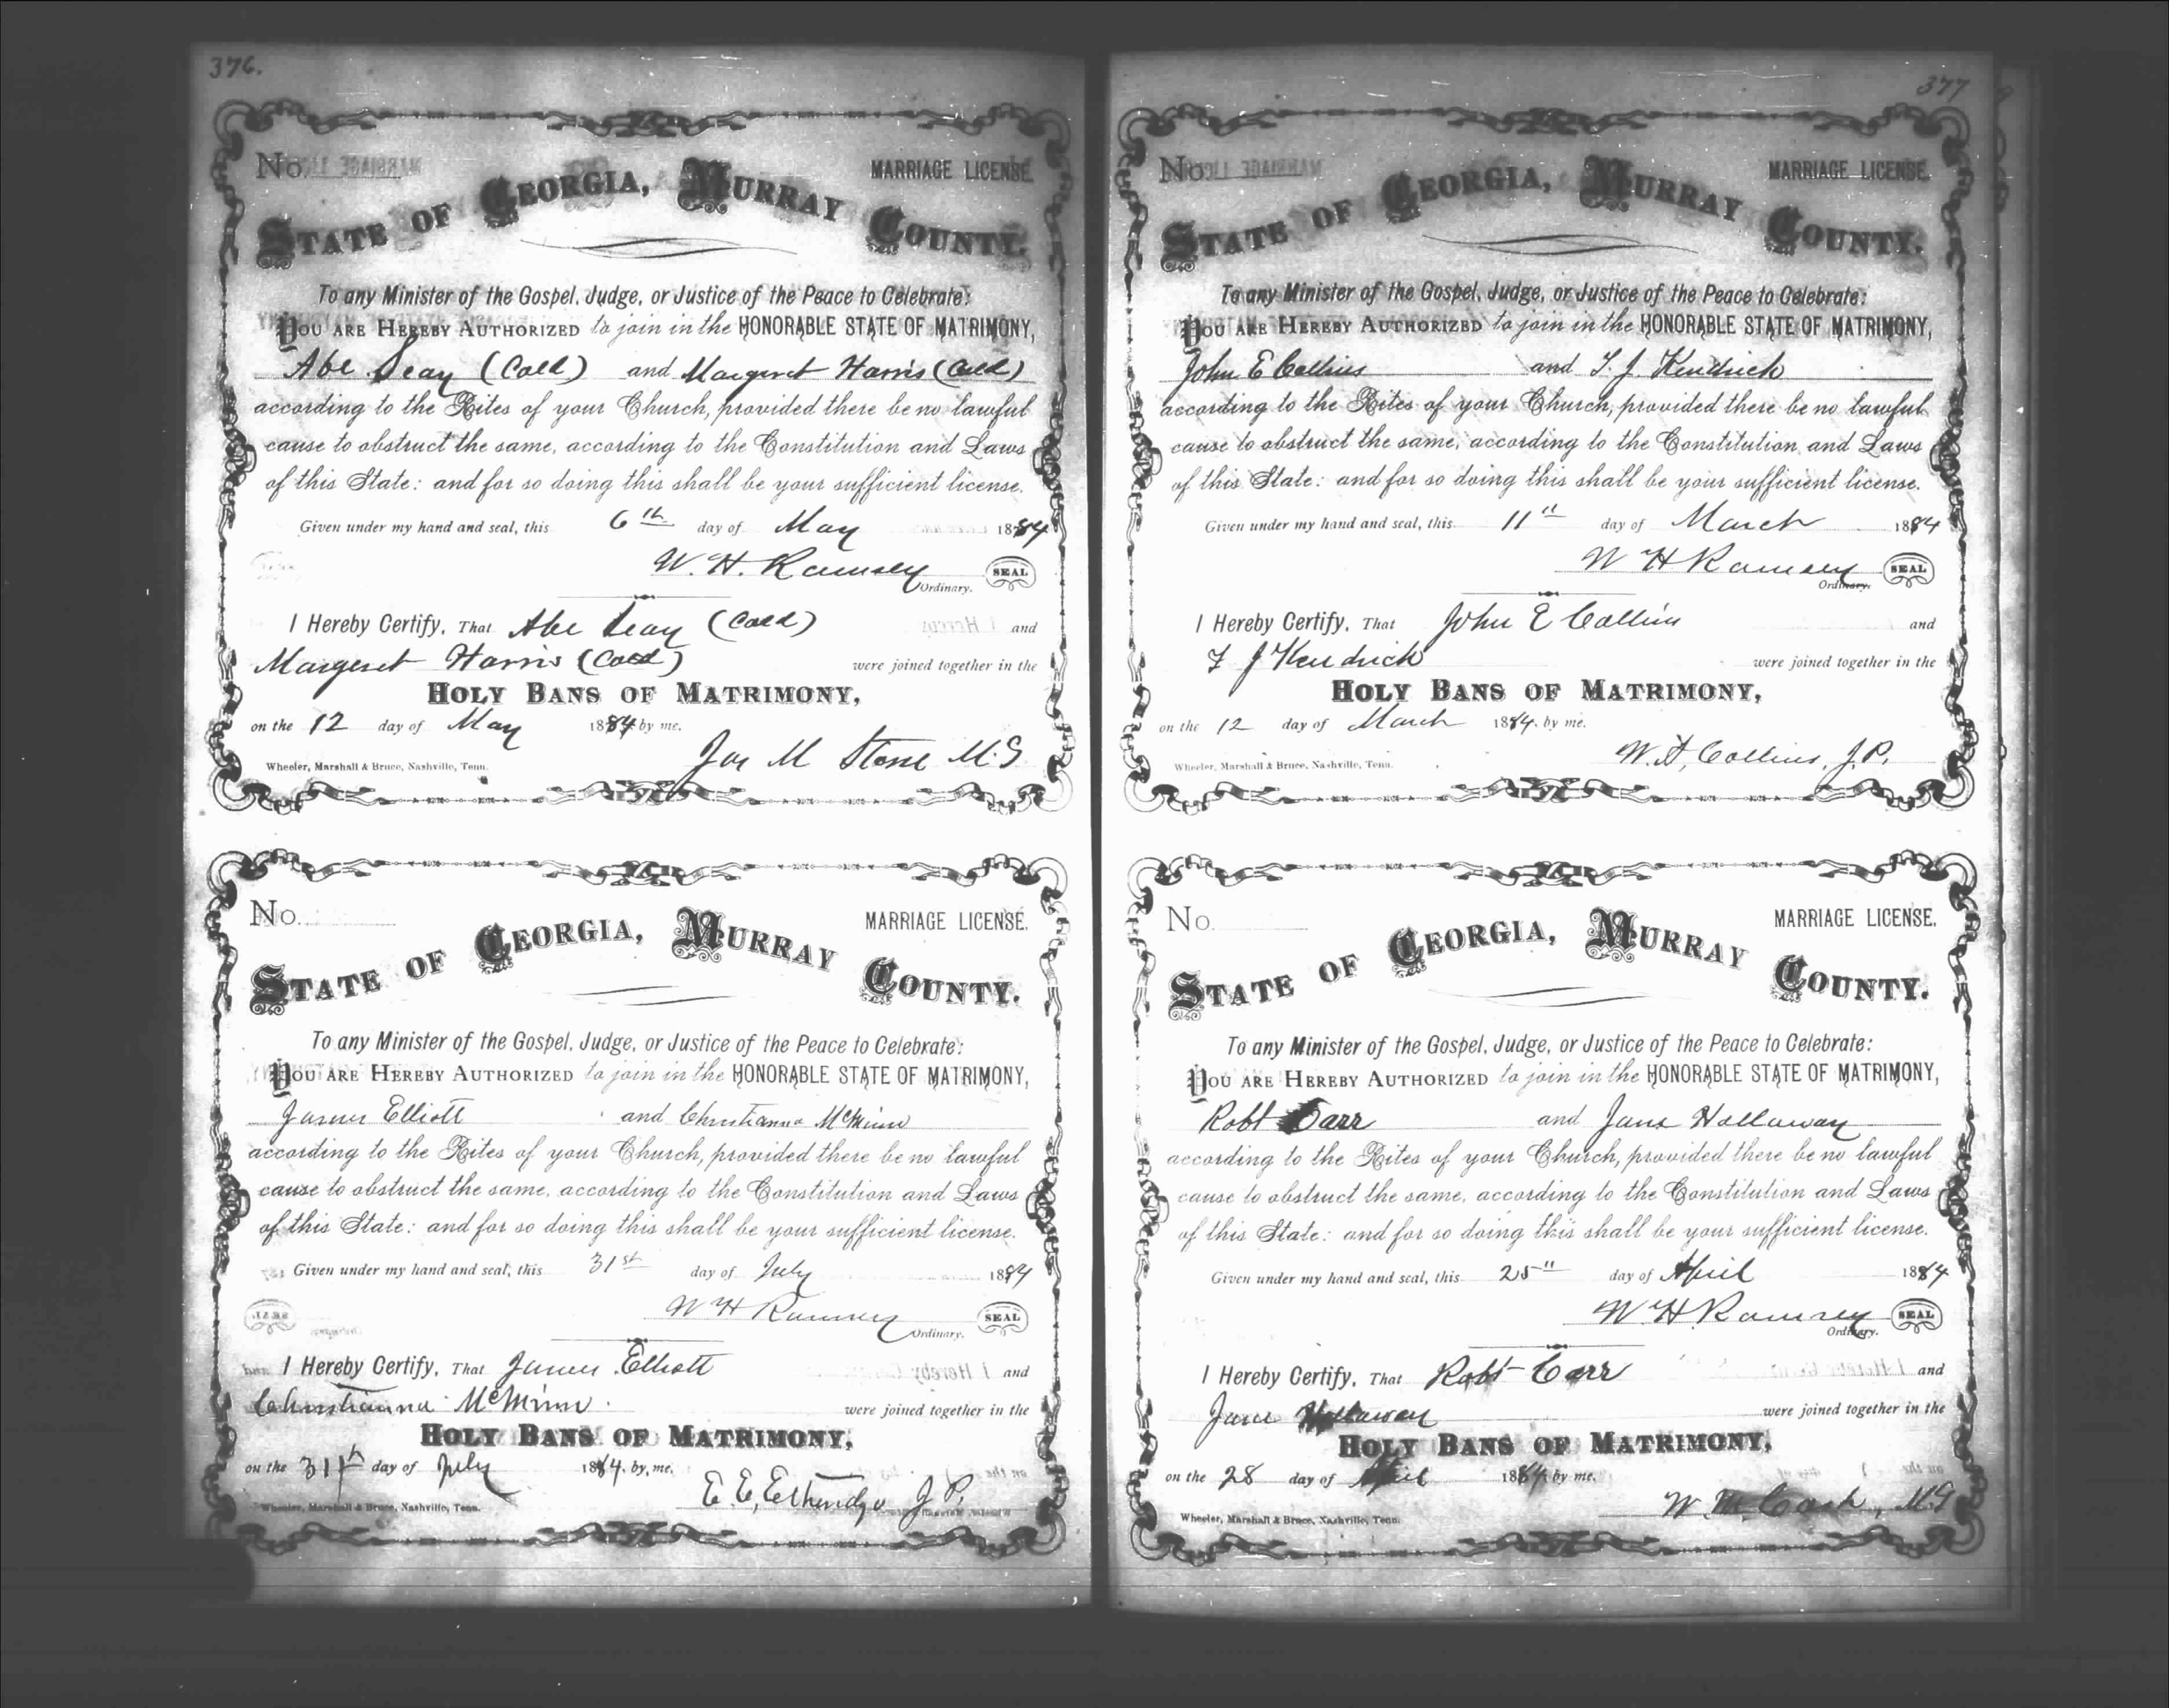 376.
No. MARRIAGE LICENSE.
STATE OF GEORGIA, MURRAY COUNTY.
To any Minister of the Gospel, Judge, or Justice of the Peace to Celebrate:
YOU ARE HEREBY AUTHORIZED to join in the HONORABLE STATE OF MATRIMONY,
Abe Seay (Cold) and Margeret Harris (Cold)
according to the Rites of your Church, provided there be no lawful
cause to obstruct the same, according to the Constitution and Laws
of this State: and for so doing this shall be your sufficient license.
Given under my hand and seal, this 6th day of May 1884
W. H. Ramsey SEAL
Ordinary.
I Hereby Certify, That Abe Seay (Cold) and
Margeret Harris (Cold) were joined together in the
HOLY BANS OF MATRIMONY,
on the 12 day of May 1884 by me.
Jas M Stone M.G
Wheeler, Marshall & Bruce, Nashville, Tenn.
No. MARRIAGE LICENSE.
STATE OF GEORGIA, MURRAY COUNTY.
To any Minister of the Gospel, Judge, or Justice of the Peace to Celebrate:
YOU ARE HEREBY AUTHORIZED to join in the HONORABLE STATE OF MATRIMONY,
James Elliott and Christianna McMinn
according to the Rites of your Church, provided there be no lawful
cause to obstruct the same, according to the Constitution and Laws
of this State: and for so doing this shall be your sufficient license.
Given under my hand and seal, this 31st day of July 1884
W H Ramsey SEAL
Ordinary.
I Hereby Certify, That James Elliott and
Christianna McMinn. were joined together in the
HOLY BANS OF MATRIMONY,
on the 31th day of July 1884. by me.
E. E. Etheridge J P.
Wheeler, Marshall & Bruce, Nashville, Tenn.
377
No. MARRIAGE LICENSE.
STATE OF GEORGIA, MURRAY COUNTY.
To any Minister of the Gospel, Judge, or Justice of the Peace to Celebrate:
YOU ARE HEREBY AUTHORIZED to join in the HONORABLE STATE OF MATRIMONY,
John E Collins and T. J. Kendrick
according to the Rites of your Church, provided there be no lawful
cause to obstruct the same, according to the Constitution and Laws
of this State: and for so doing this shall be your sufficient license.
Given under my hand and seal, this 11" day of March 1884
W H Ramsey SEAL
Ordinary.
I Hereby Certify, That John E Collins and
T J Kendrick were joined together in the
HOLY BANS OF MATRIMONY,
on the 12 day of March 1884. by me.
W. A. Collins, J.P.
Wheeler, Marshall & Bruce, Nashville, Tenn.
No. MARRIAGE LICENSE.
STATE OF GEORGIA, MURRAY COUNTY.
To any Minister of the Gospel, Judge, or Justice of the Peace to Celebrate:
YOU ARE HEREBY AUTHORIZED to join in the HONORABLE STATE OF MATRIMONY,
Robt Carr and Jane Hollaway
according to the Rites of your Church, provided there be no lawful
cause to obstruct the same, according to the Constitution and Laws
of this State: and for so doing this shall be your sufficient license.
Given under my hand and seal, this 25" day of April 1884
W. H. Ramsey SEAL
Ordinary.
I Hereby Certify, That Robt Carr and
Jane Hollaway were joined together in the
HOLY BANS OF MATRIMONY,
on the 28 day of April 1884 by me.
W. M. Cash, M.G
Wheeler, Marshall & Bruce, Nashville, Tenn.